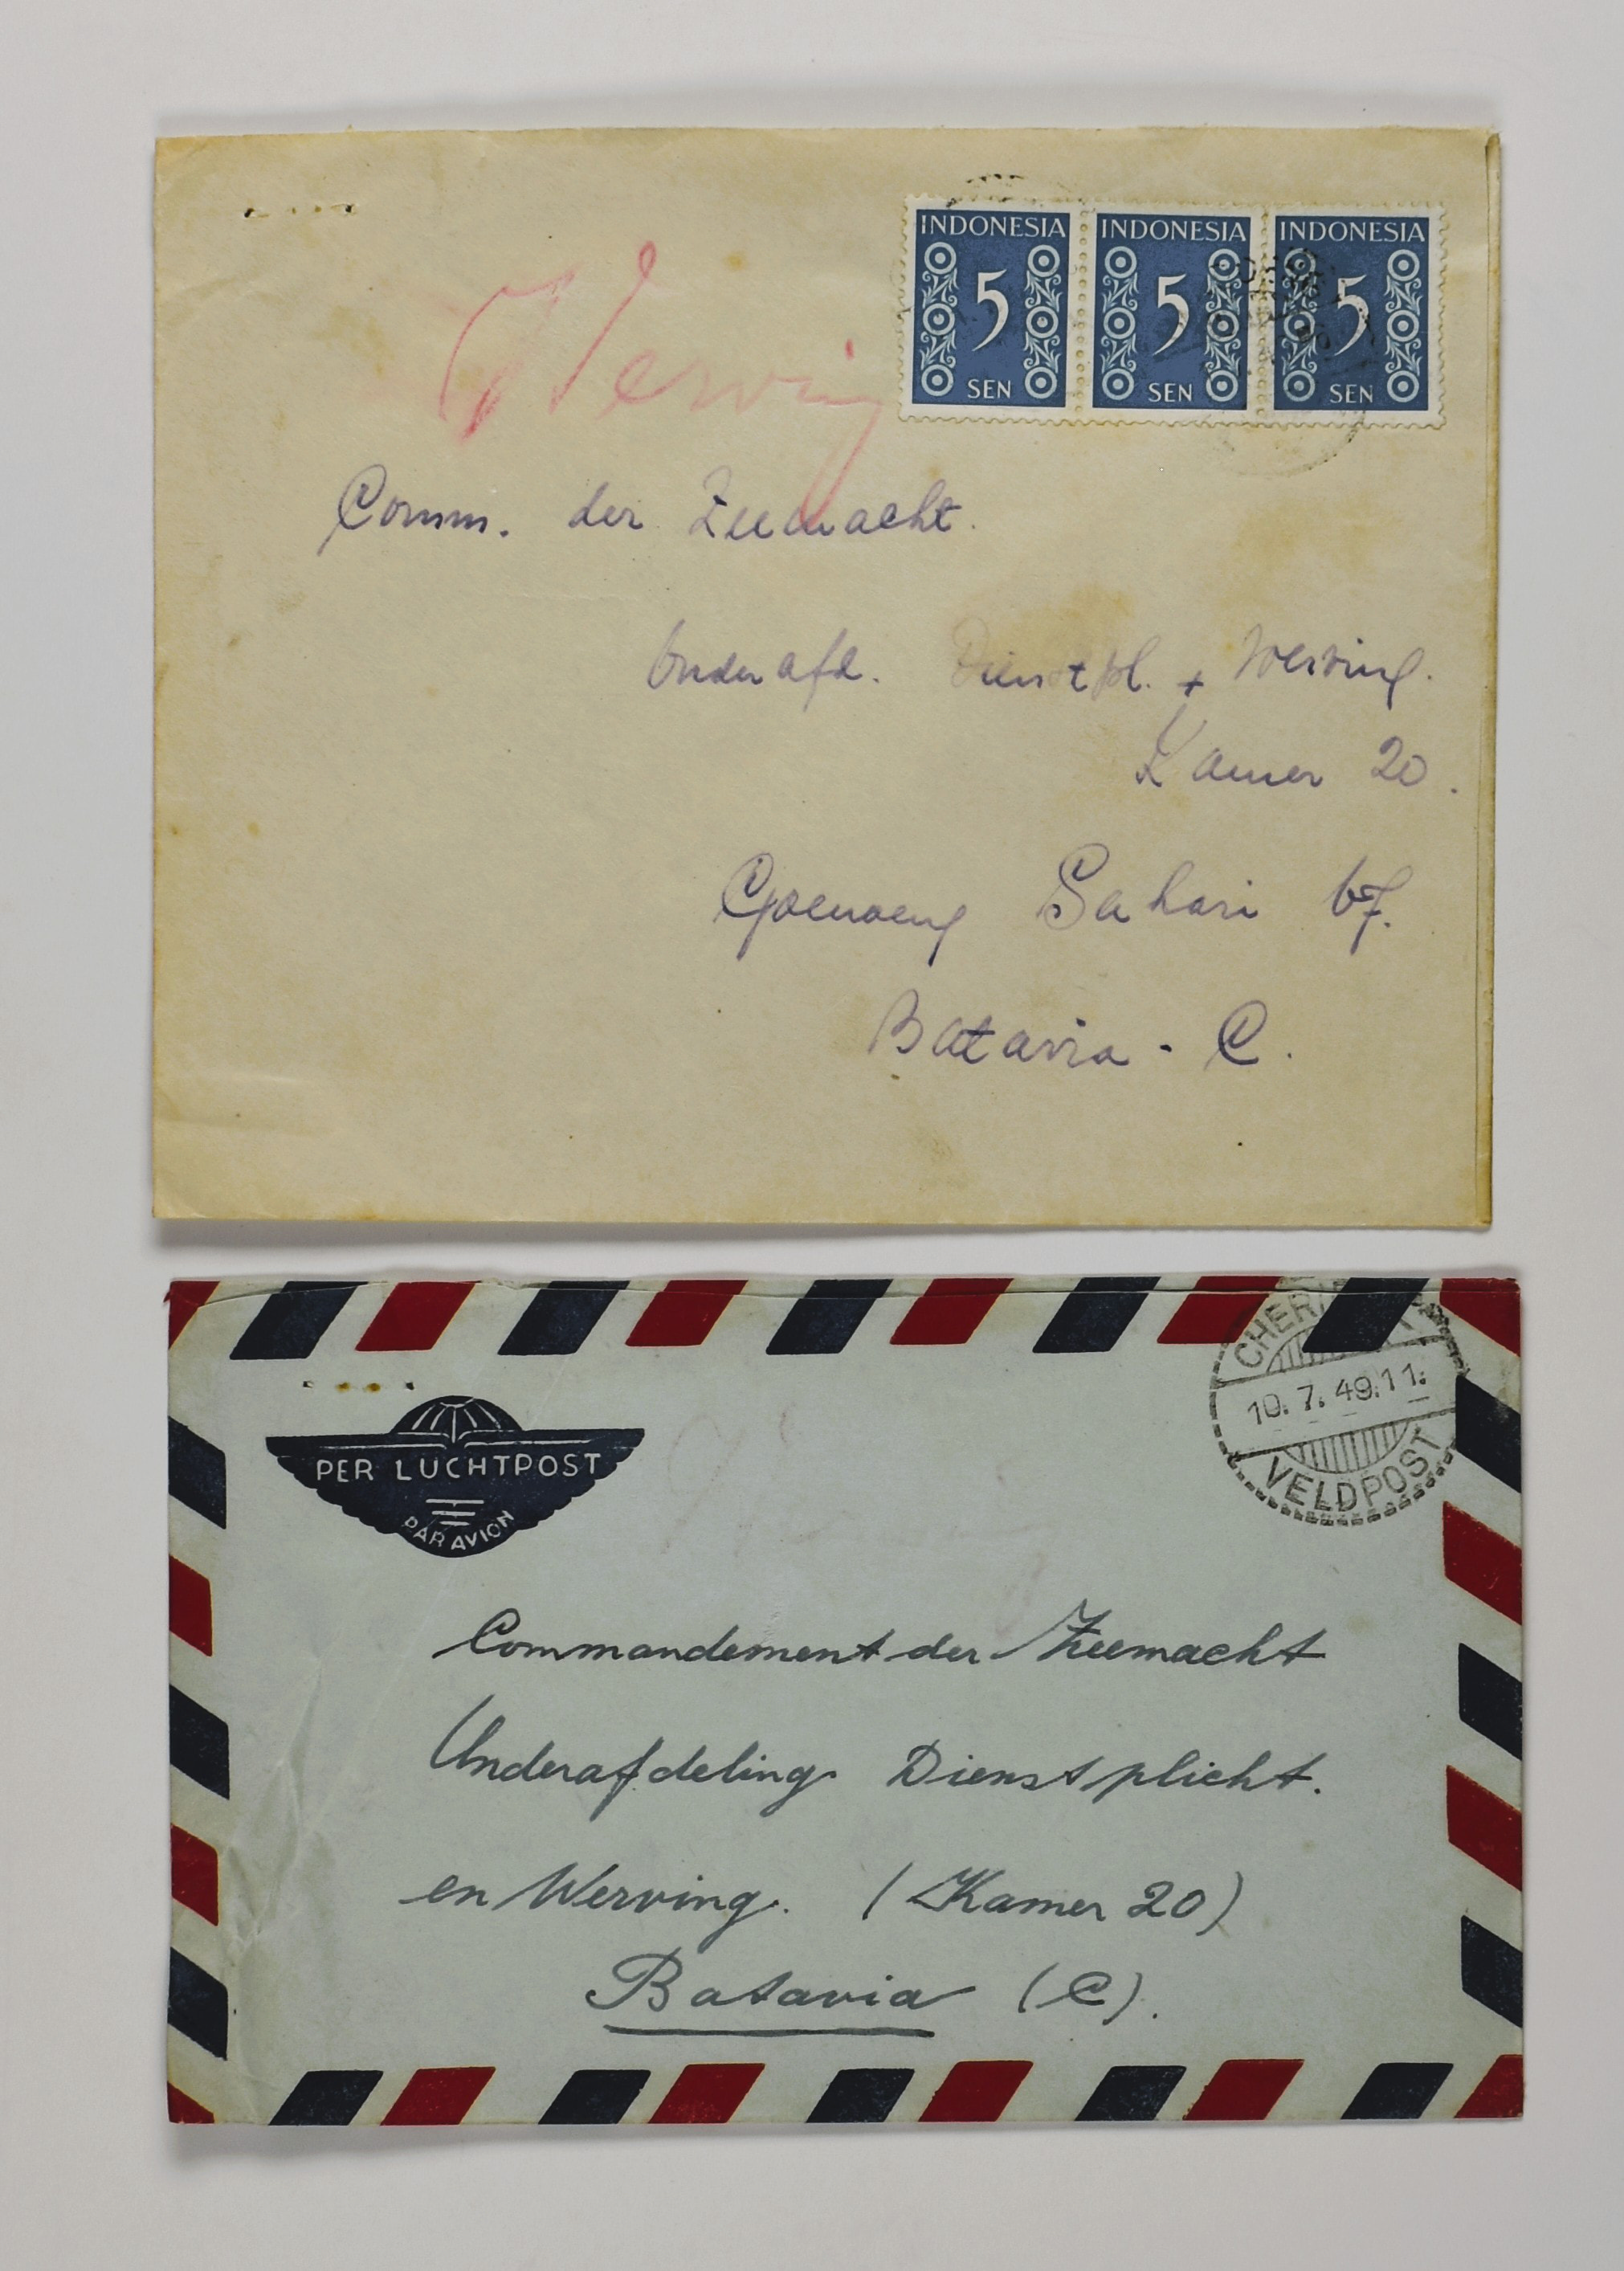 INDONESIA INDONESIA INDONESIA
5 5 5
SEN SEN SEN
Werving
Comm. der Zeemacht.
Onderafd. Dienstpl. + Werving.
Kamer 20.
Goenoeng Sahari 67.
Batavia - C.
10. 7. 49. 11.
VELDPOST
PER LUCHTPOST
PAR AVION
Commandement der Zeemacht
Onderafdeling Dienstplicht.
en Werving. (Kamer 20)
Batavia (C).